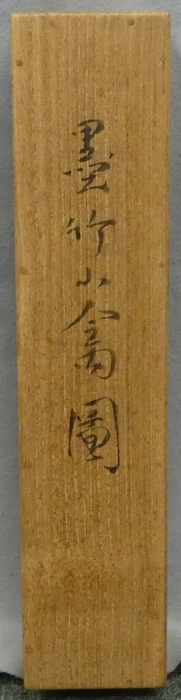 墨竹小禽圖